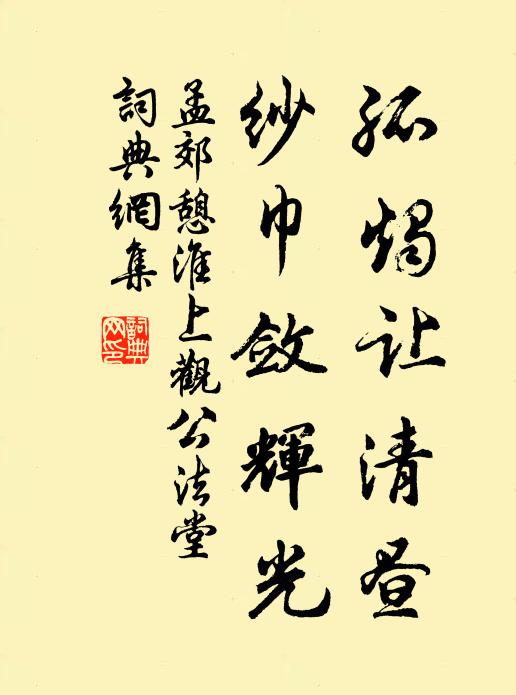 孤燭让清昼
紗巾斂輝光
孟郊憩淮上觀公法堂
詞典網集
詞典网印